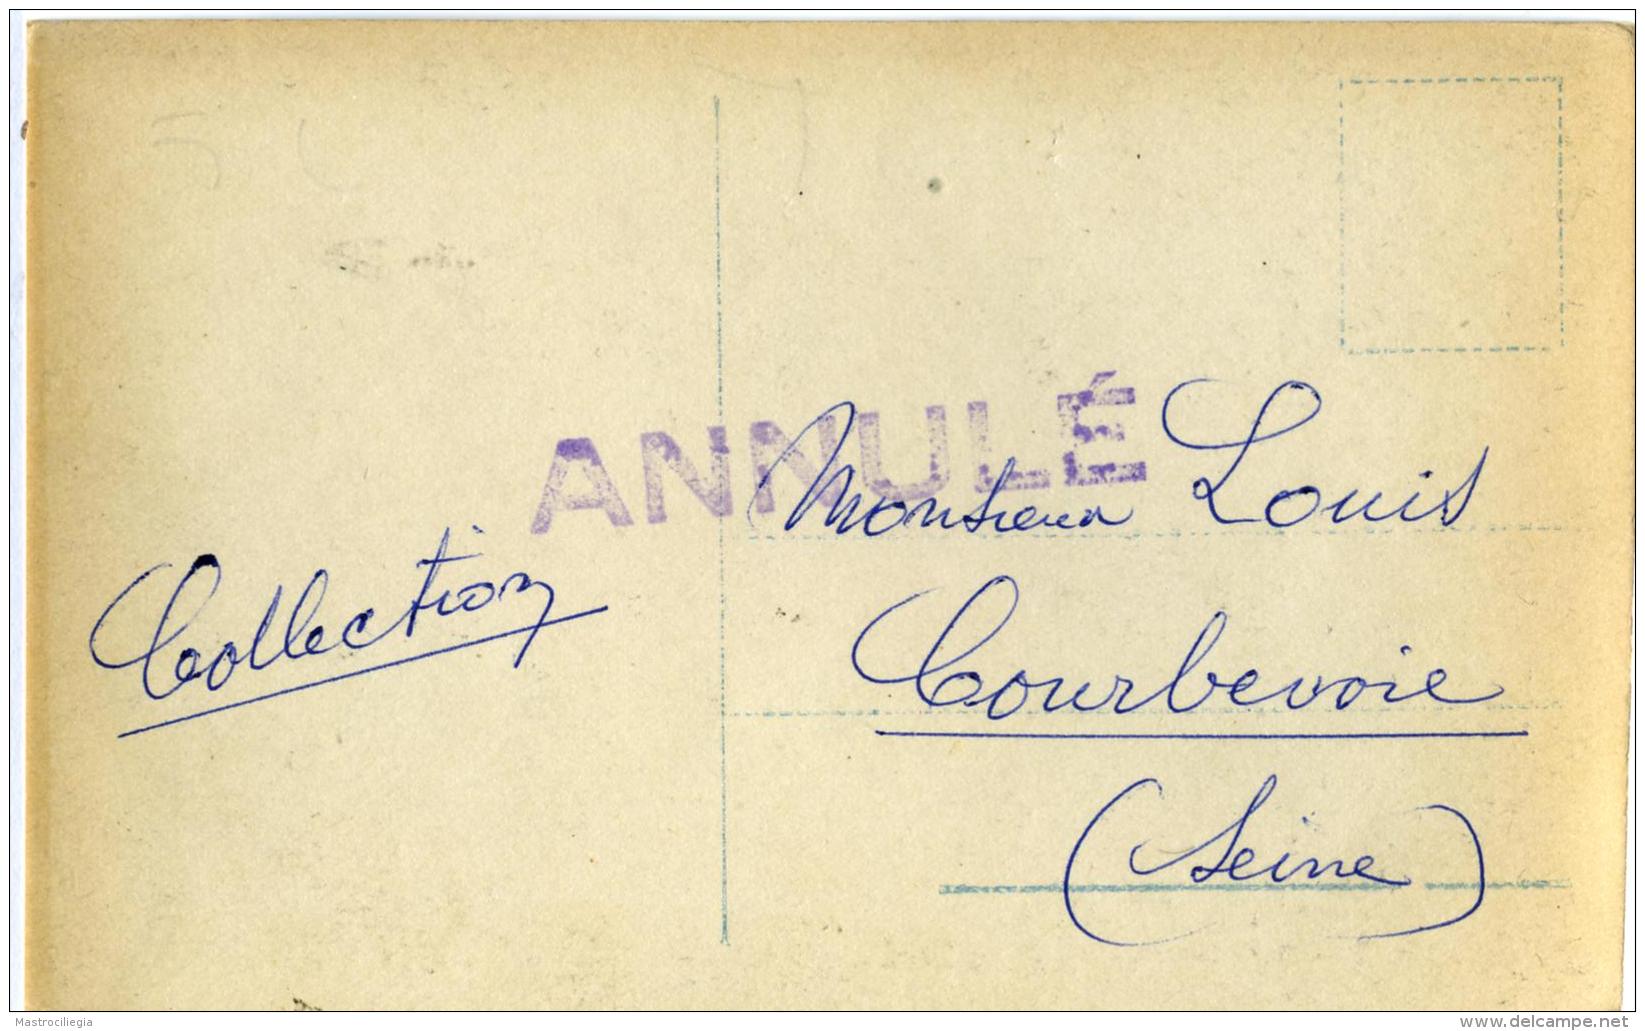 ANNULÉ
Collection
Monsieur Louis
Courbevoie
(Seine)
Mastrociliegia
www.delcampe.net